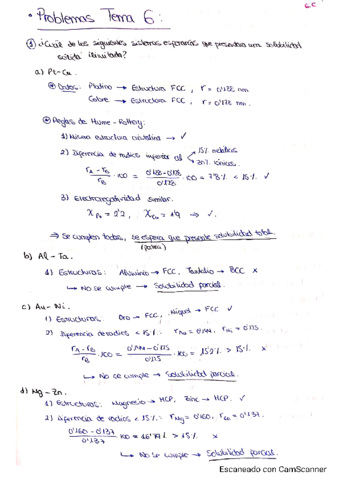 6C
• Problemas Tema 6:
① ¿Cuál de los siguientes sistemas esperarías que presentara una solubilidad
sólida ilimitada?
a) Pt-Cu.
Datos: Platino → Estructura FCC, r = 0'138 nm
Cobre → Estructura FCC, r = 0'128 nm.
Reglas de Hume-Rothery:
1) Misma estructura cristalina → ✓
2) Diferencia de radios inferior al 15% metálicos
30% iónicos.
rA - rB / rB · 100 = 0'138 - 0'128 / 0'128 · 100 = 7'8% < 15% ✓
3) Electronegatividad similar.
χPt = 2'2, χCu = 1'9 → ✓.
⇒ Se cumplen todas, se espera que presente solubilidad total.
b) Al - Ta.
1) Estructuras: Aluminio → FCC, Tantalio → BCC ×
↳ No se cumple → Solubilidad parcial.
c) Au - Ni.
1) Estructuras: Oro → FCC, Níquel → FCC ✓
2) Diferencia de radios < 15%: rAu = 0'144, rNi = 0'125.
rA - rB / rB · 100 = 0'144 - 0'125 / 0'125 · 100 = 15'2% > 15% ×
↳ No se cumple → Solubilidad parcial.
d) Mg - Zn.
1) Estructuras: Magnesio → HCP, Zinc → HCP. ✓
2) Diferencia de radios < 15%: rMg = 0'160, = 0'137.
0'160 - 0'137 / 0'137 · 100 = 16'79% > 15% ×
↳ No se cumple → Solubilidad parcial.
Escaneado con CamScanner